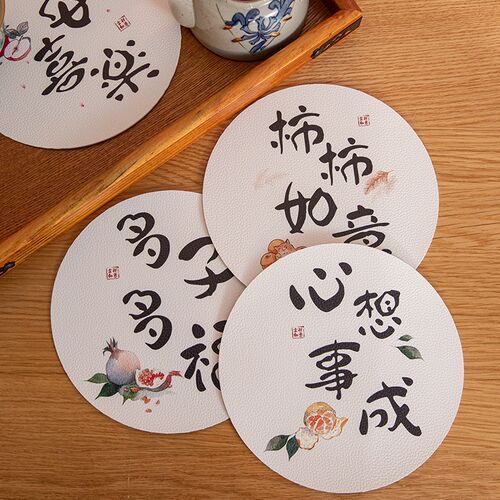 柿柿
如意
多子
多福
心想
事成